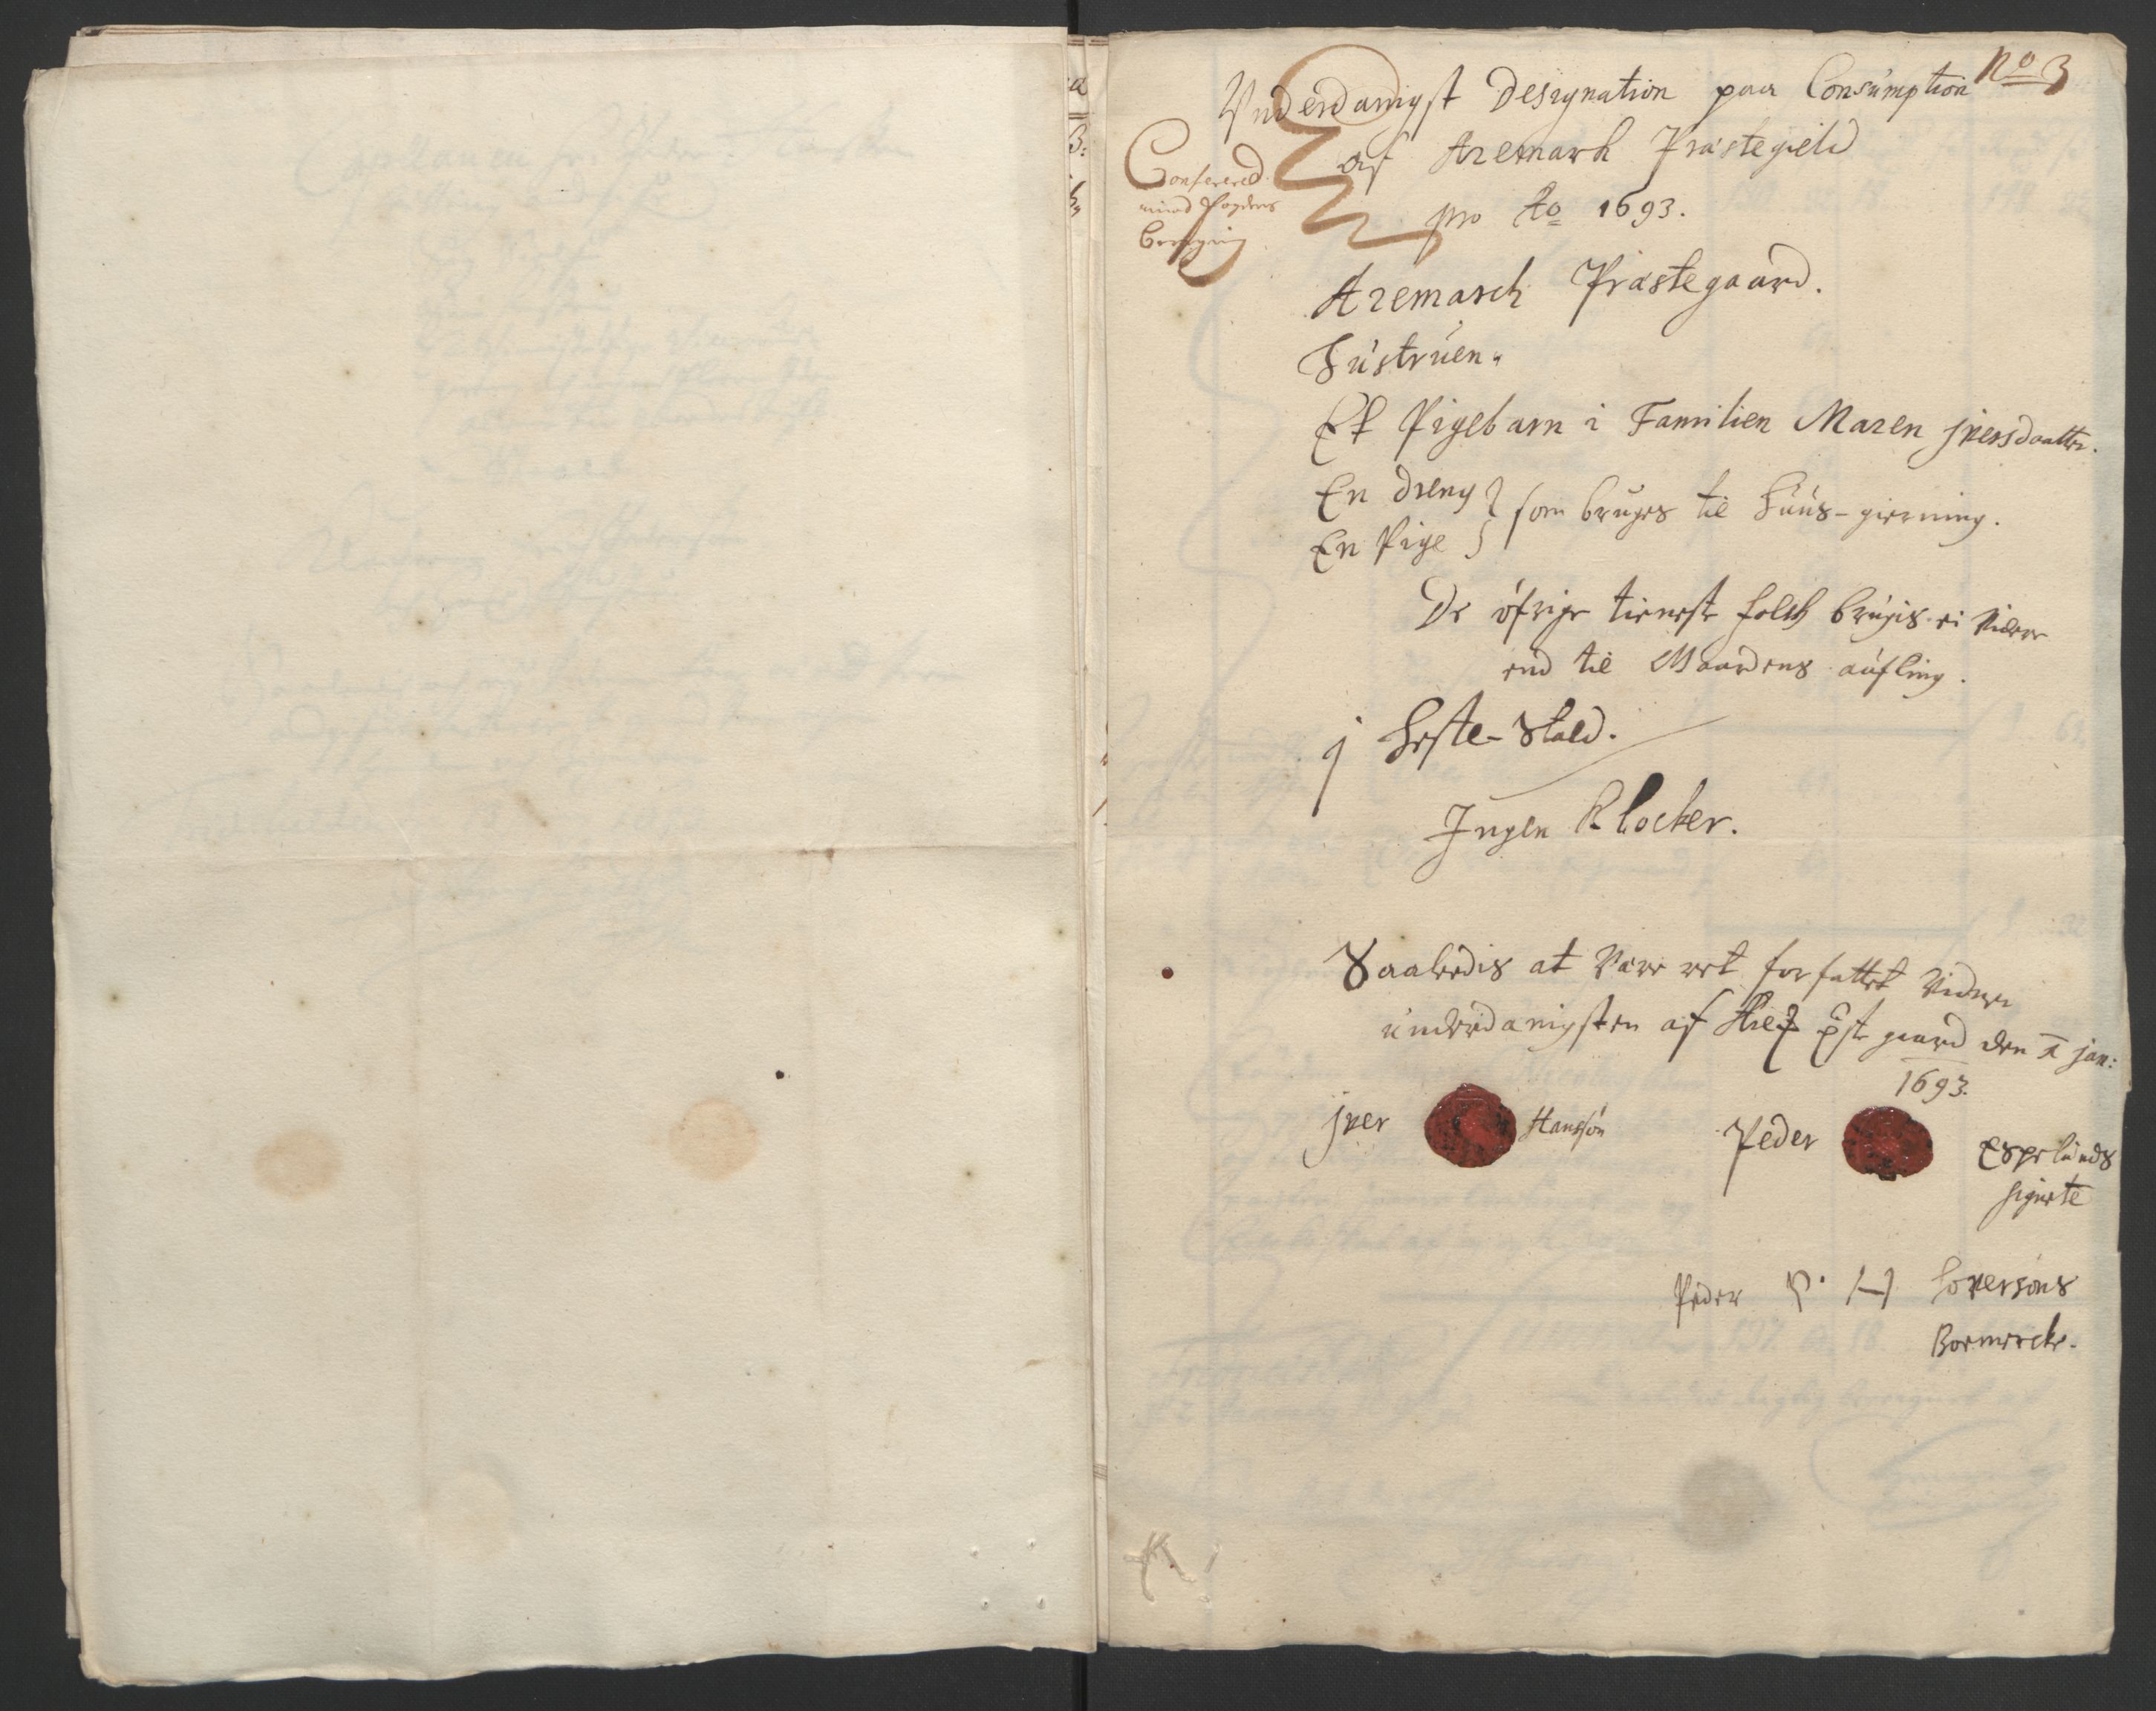 No 3
Underdanigst Designation paa Consumption
af Aremark Præstegield
pro Ao 1693.
Conferered
med Fogdens
Aremarch Præstegaard.
Hustruen.
Et Pigebarn i Familien Maren jversdaatter.
En dreng
En Pige } som bruges til Huus-gierning.
De öfrige tienest folch brugis ei videre
end til Gaardens aufling.
j Heste-Stald.
Ingen Klocker.
Saaledis at være ret forfattet vidner
underdanigsten af gaard den 1 jan:
1693.
jver Hanssön Peder Espelunds
signete
Peder P. H Loversöns
Boemercke.